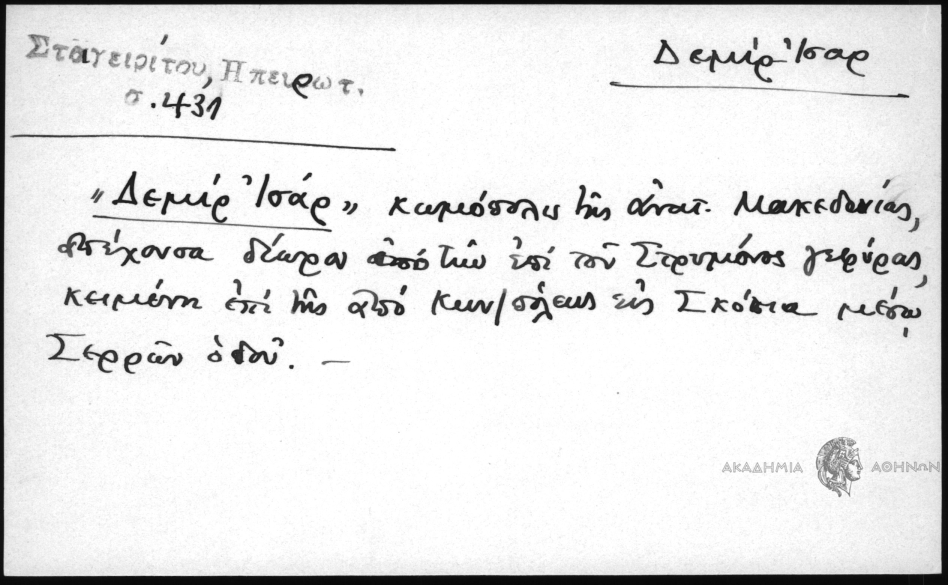 Σταγειρίτου, Ηπειρωτ.
σ. 431
Δεμίρ Ἰσαρ
"Δεμίρ Ἰσάρ" κωμόπολις τῆς ἀνατ. Μακεδονίας,
ἀπέχουσα δίωρον ἀπὸ τῆς ἐπὶ τοῦ Στρυμόνος γεφύρας,
κειμένη ἐπὶ τῆς ἀπὸ Κων/πόλεως εἰς Σκόπια μέσῳ
Σερρῶν ὁδοῦ. —
ΑΚΑΔΗΜΙΑ ΑΘΗΝΩΝ